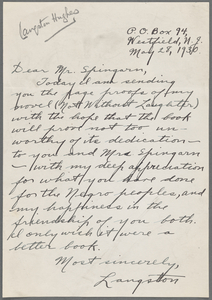 Langston Hughes
P.O. Box 94,
Westfield, N.J.
May 28, 1930
Dear Mr. Spingarn,
Today I am sending
you the page proofs of my
novel (Not Without Laughter)
with the hope that the book
will prove not too un-
worthy of its dedication—
to you and Mrs. Spingarn
—with my deep appreciation
for what you have done
for the Negro peoples, and
my happiness in the
friendship of you both.
I only wish it were a
better book.
Most sincerely,
Langston